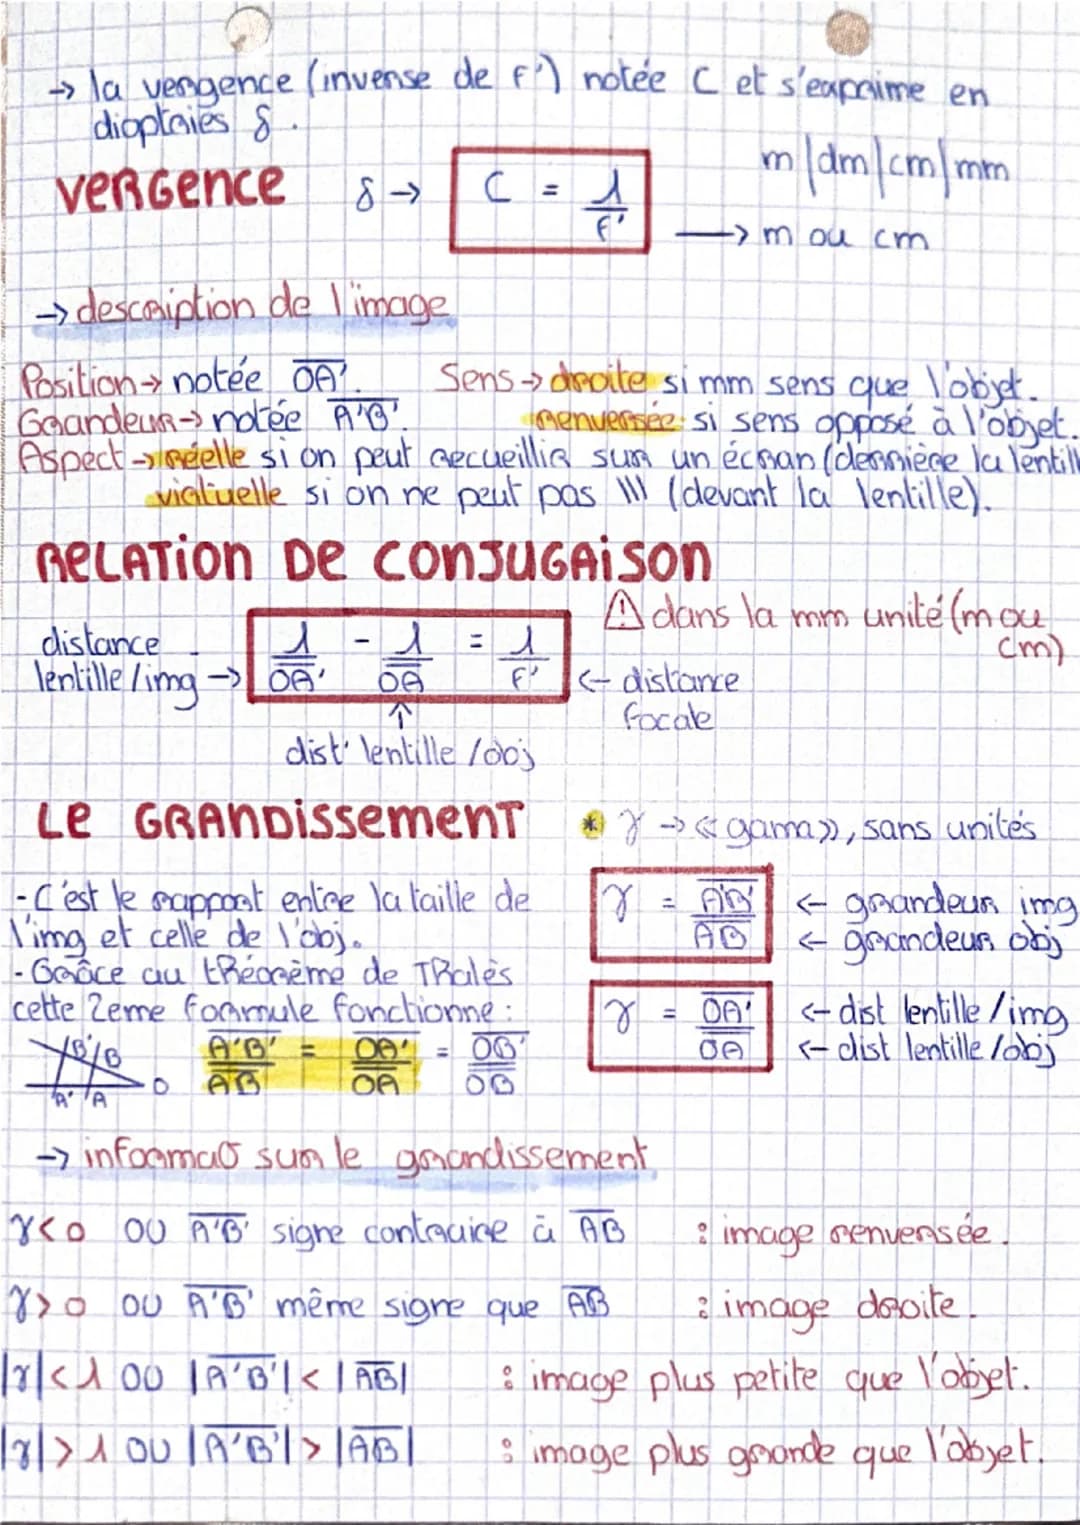 → la vergence (inverse de F') notée C et s'exprime en
dioptries δ.
m|dm|cm|mm
VERGENCE δ → C = 1/F' → m ou cm
→ description de l'image
Position → notée O̅A̅'. Sens → droite si mm sens que l'objet.
Grandeur → notée A̅'B̅'. renversée si sens opposé à l'objet.
Aspect → réelle si on peut recueillir sur un écran (dernière la lentill
virtuelle si on ne peut pas \\\ (devant la lentille).
RELATION DE CONJUGAISON
⚠ dans la mm unité (m ou cm)
distance lentille/img → 1/O̅A̅' - 1/O̅A̅ = 1/F' ← distance focale
↑
dist' lentille/obj
LE GRANDISSEMENT * γ → « gama », sans unités
- C'est le rapport entre la taille de
l'img et celle de l'obj.
γ = A̅'B̅'/A̅B̅ ← grandeur img ← grandeur obj
- Grâce au théorème de Thalès
cette 2eme formule fonctionne :
γ = O̅A̅'/O̅A̅ ← dist lentille/img ← dist lentille/obj
B' B O A' A
A̅'B̅'/A̅B̅ = O̅A̅'/O̅A̅ = O̅B̅'/O̅B̅
→ informa° sur le grandissement
γ<0 OU A̅'B̅' signe contraire à A̅B̅ : image renversée.
γ>0 OU A̅'B̅' même signe que A̅B̅ : image droite.
|γ|<1 OU |A̅'B̅'|<|A̅B̅| : image plus petite que l'objet.
|γ|>1 OU |A̅'B̅'|>|A̅B̅| : image plus grande que l'objet.